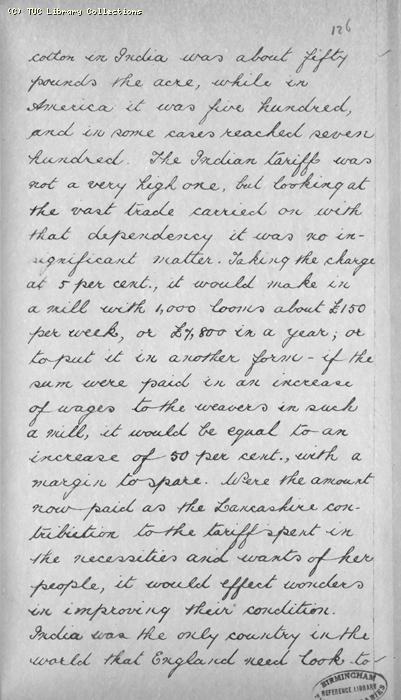 (C) TUC Library Collections
126
cotton in India was about fifty
pounds the acre, while in
America it was five hundred,
and in some cases reached seven
hundred. The Indian tariff was
not a very high one, but looking at
the vast trade carried on with
that dependency it was no in-
significant matter. Taking the charge
at 5 per cent., it would make in
a mill with 1,000 looms about £150
per week, or £7,800 in a year; or
to put it in another form - if the
sum were paid in an increase
of wages to the weavers in such
a mill, it would be equal to an
increase of 50 per cent., with a
margin to spare. Were the amount
now paid as the Lancashire con-
tribution to the tariff spent in
the necessities and wants of her
people, it would effect wonders
in improving their condition.
India was the only country in the
world that England need look to
BIRMINGHAM
REFERENCE LIBRARY